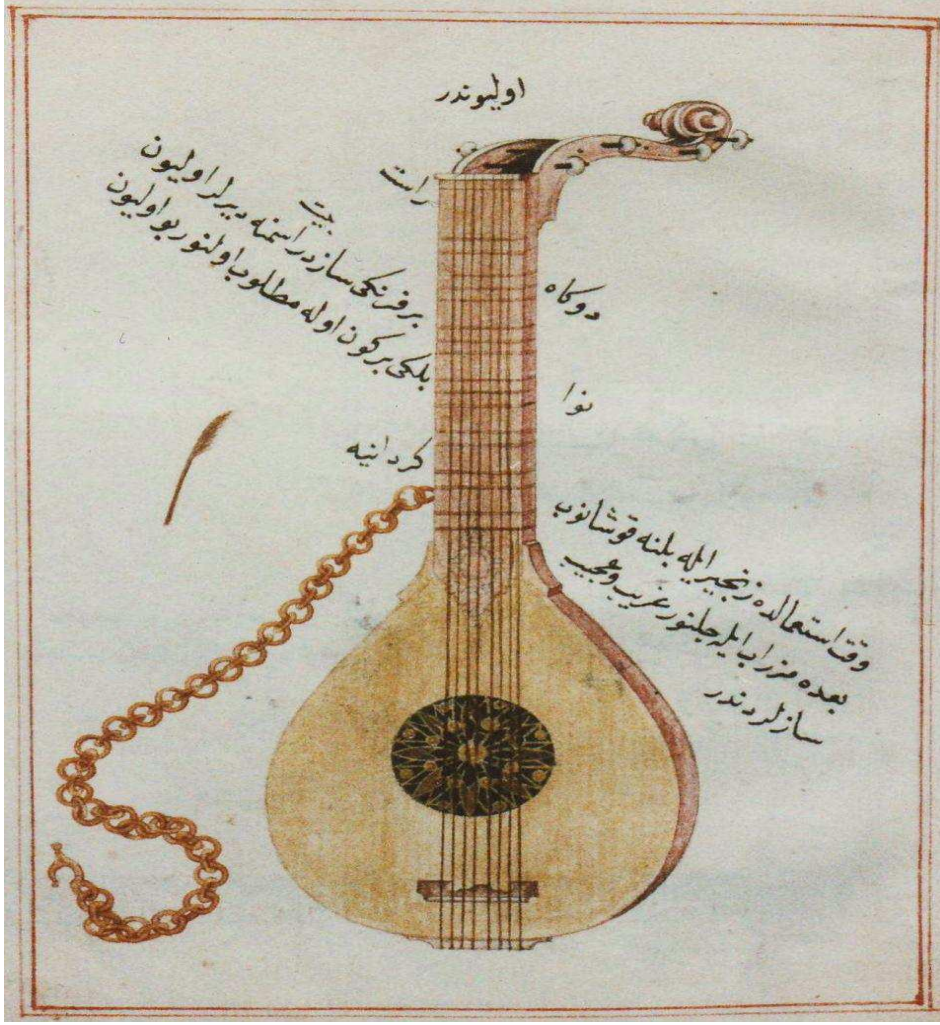 اوليوندر
راست
بيت
بر فرنكى سازدر اسمنه ديرلر اوليون
بلكى بر كون اوله مطلوب اولنور بو اوليون
دوكاه
نوا
كردانيه
وقت استعمالده زنجير ايله بلنه قوشانوب
بعده مزراب ايله چلنور غريب و عجيب
سازلردندر